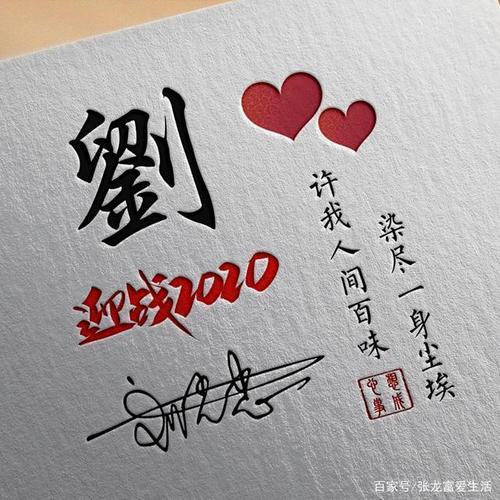 劉
迎战2020
许我人间百味
染尽一身尘埃
心想事成
百家号/张龙富爱生活